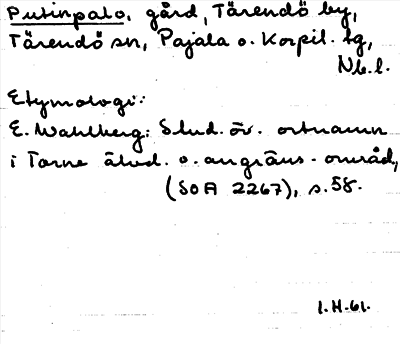 Putinpalo, gård, Tärendö by,
Tärendö sn, Pajala o. Korpil. tg,
Nb.l.
Etymologi:
E. Wahlberg: Stud. öv. ortnamn
i Torne älvd. o. angräns. områd,
(SOA 2267), s. 58.
1.H.61.